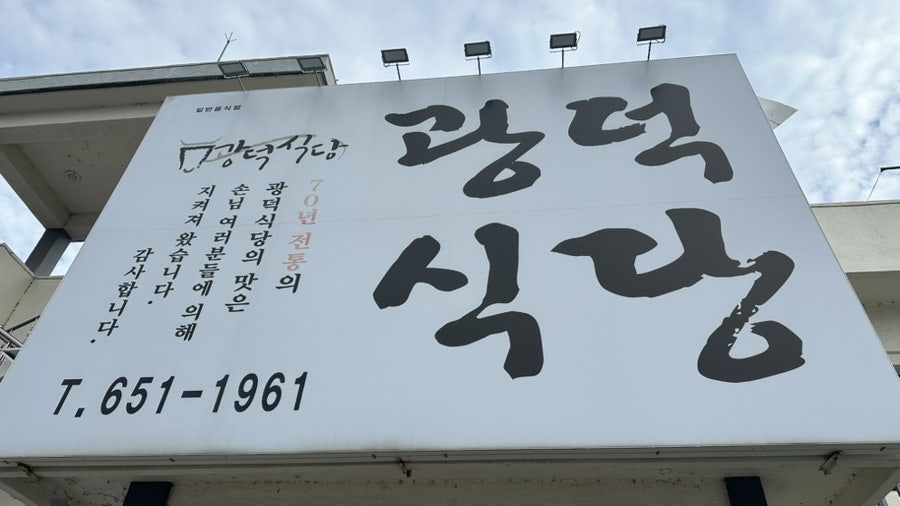 일반음식점
광덕식당
70년 전통의
광덕식당의 맛은
손님 여러분들에 의해
지켜져 왔습니다.
감사합니다.
T. 651-1961
광덕
식당